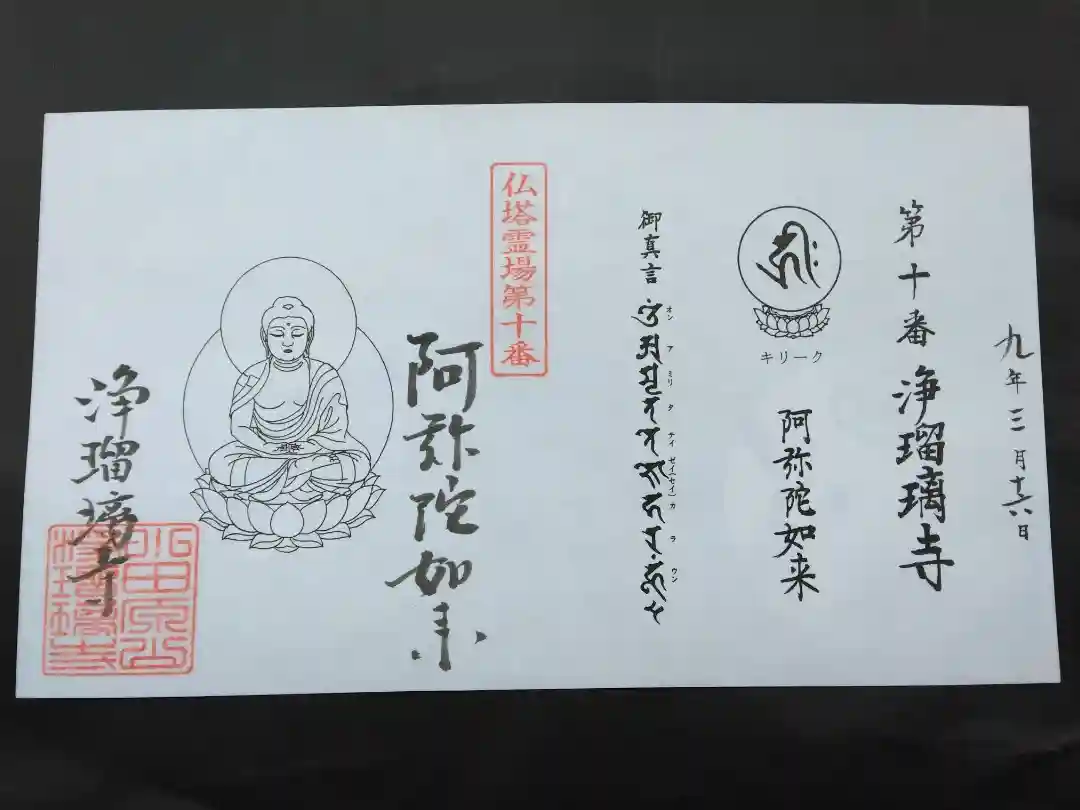 九年三月十六日
第十番 浄瑠璃寺
キリーク
阿弥陀如来
御真言
オン ア ミリ タ テイ ゼイ(セイ) カ ラ ウン
仏塔霊場第十番
阿弥陀如来
浄瑠璃寺